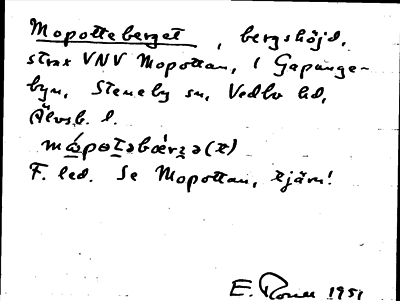 Mopotteberget, bergshöjd,
strax VNV Mopottan, i Gapunge-
byn, Steneby sn, Vedbo hd,
Älvsb. l.
F. led. Se Mopottan, tjärn!
E. 1951